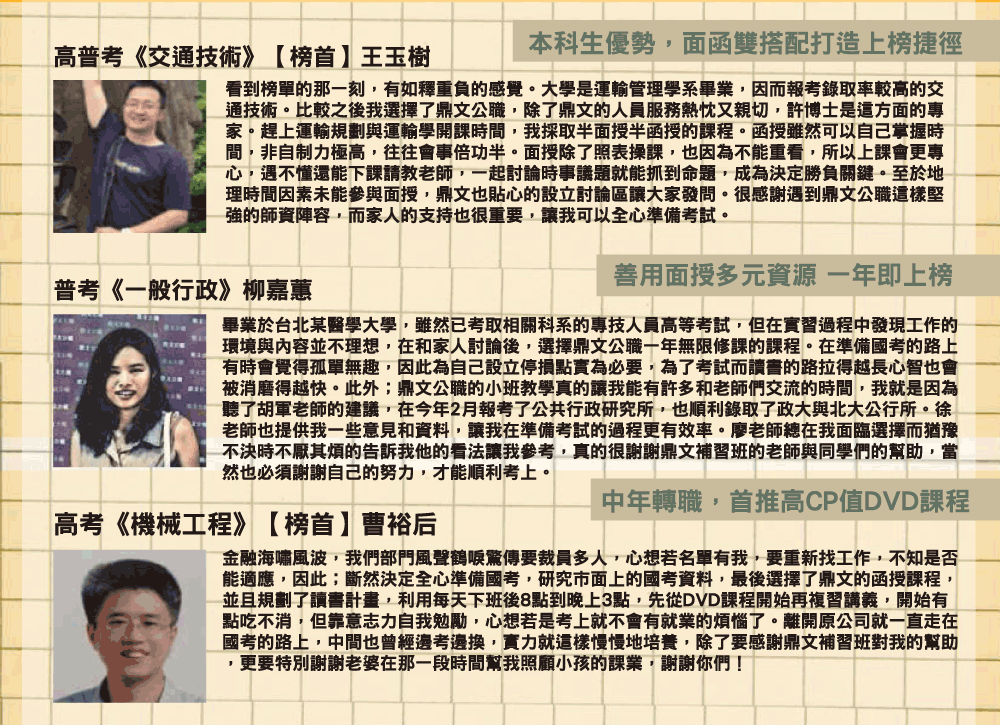 本科生優勢，面函雙搭配打造上榜捷徑
高普考《交通技術》【榜首】王玉樹
看到榜單的那一刻，有如釋重負的感覺。大學是運輸管理學系畢業，因而報考錄取率較高的交
通技術。比較之後我選擇了鼎文公職，除了鼎文的人員服務熱忱又親切，許博士是這方面的專
家。趕上運輸規劃與運輸學開課時間，我採取半面授半函授的課程。函授雖然可以自己掌握時
間，非自制力極高，往往會事倍功半。面授除了照表操課，也因為不能重看，所以上課會更專
心，遇不懂還能下課請教老師，一起討論時事議題就能抓到命題，成為決定勝負關鍵。至於地
理時間因素未能參與面授，鼎文也貼心的設立討論區讓大家發問。很感謝遇到鼎文公職這樣堅
強的師資陣容，而家人的支持也很重要，讓我可以全心準備考試。
善用面授多元資源 一年即上榜
普考《一般行政》柳嘉蕙
畢業於台北某醫學大學，雖然已考取相關科系的專技人員高等考試，但在實習過程中發現工作的
環境與內容並不理想，在和家人討論後，選擇鼎文公職一年無限修課的課程。在準備國考的路上
有時會覺得孤單無趣，因此為自己設立停損點實為必要，為了考試而讀書的路拉得越長心智也會
被消磨得越快。此外；鼎文公職的小班教學真的讓我能有許多和老師們交流的時間，我就是因為
聽了胡軍老師的建議，在今年2月報考了公共行政研究所，也順利錄取了政大與北大公行所。徐
老師也提供我一些意見和資料，讓我在準備考試的過程更有效率。廖老師總在我面臨選擇而猶豫
不決時不厭其煩的告訴我他的看法讓我參考，真的很謝謝鼎文補習班的老師與同學們的幫助，當
然也必須謝謝自己的努力，才能順利考上。
中年轉職，首推高CP值DVD課程
高考《機械工程》【榜首】曹裕后
金融海嘯風波，我們部門風聲鶴唳驚傳要裁員多人，心想若名單有我，要重新找工作，不知是否
能適應，因此；斷然決定全心準備國考，研究市面上的國考資料，最後選擇了鼎文的函授課程，
並且規劃了讀書計畫，利用每天下班後8點到晚上3點，先從DVD課程開始再複習講義，開始有
點吃不消，但靠意志力自我勉勵，心想若是考上就不會有就業的煩惱了。離開原公司就一直走在
國考的路上，中間也曾經邊考邊換，實力就這樣慢慢地培養，除了要感謝鼎文補習班對我的幫助
，更要特別謝謝老婆在那一段時間幫我照顧小孩的課業，謝謝你們！